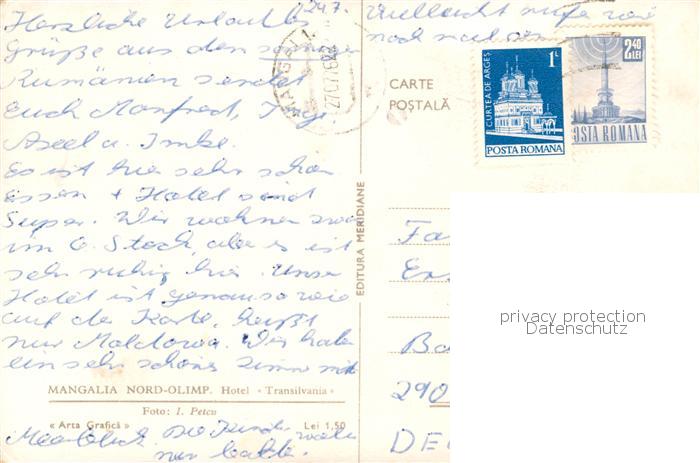 24.7.
Herzliche Urlaubs
Grüße aus dem sonnigen
Rumänien sendet
Euch Manfred,
Axel u. Imke.
Es ist hier sehr schön
Essen + Hotel sind
Super. Wir wohnen zwar
im 6. Stock, aber es ist
sehr ruhig hier. Unser
Hotel ist genauso wie
auf der Karte, heißt
nur Moldova. Wir haben
ein sehr schönes Zimmer mit
Meerblick. Die Kinder wollen
nur baden.
Vielleicht
noch mal
MANGALIA
CARTE
POȘTALĂ
CURTEA DE ARGEȘ
1L
POSTA ROMANA
2,40
LEI
POSTA ROMANA
EDITURA MERIDIANE
Fa
290
DE
MANGALIA NORD-OLIMP. Hotel «Transilvania»
Foto: I. Petcu
« Arta Grafică » Lei 1,50
privacy protection
Datenschutz